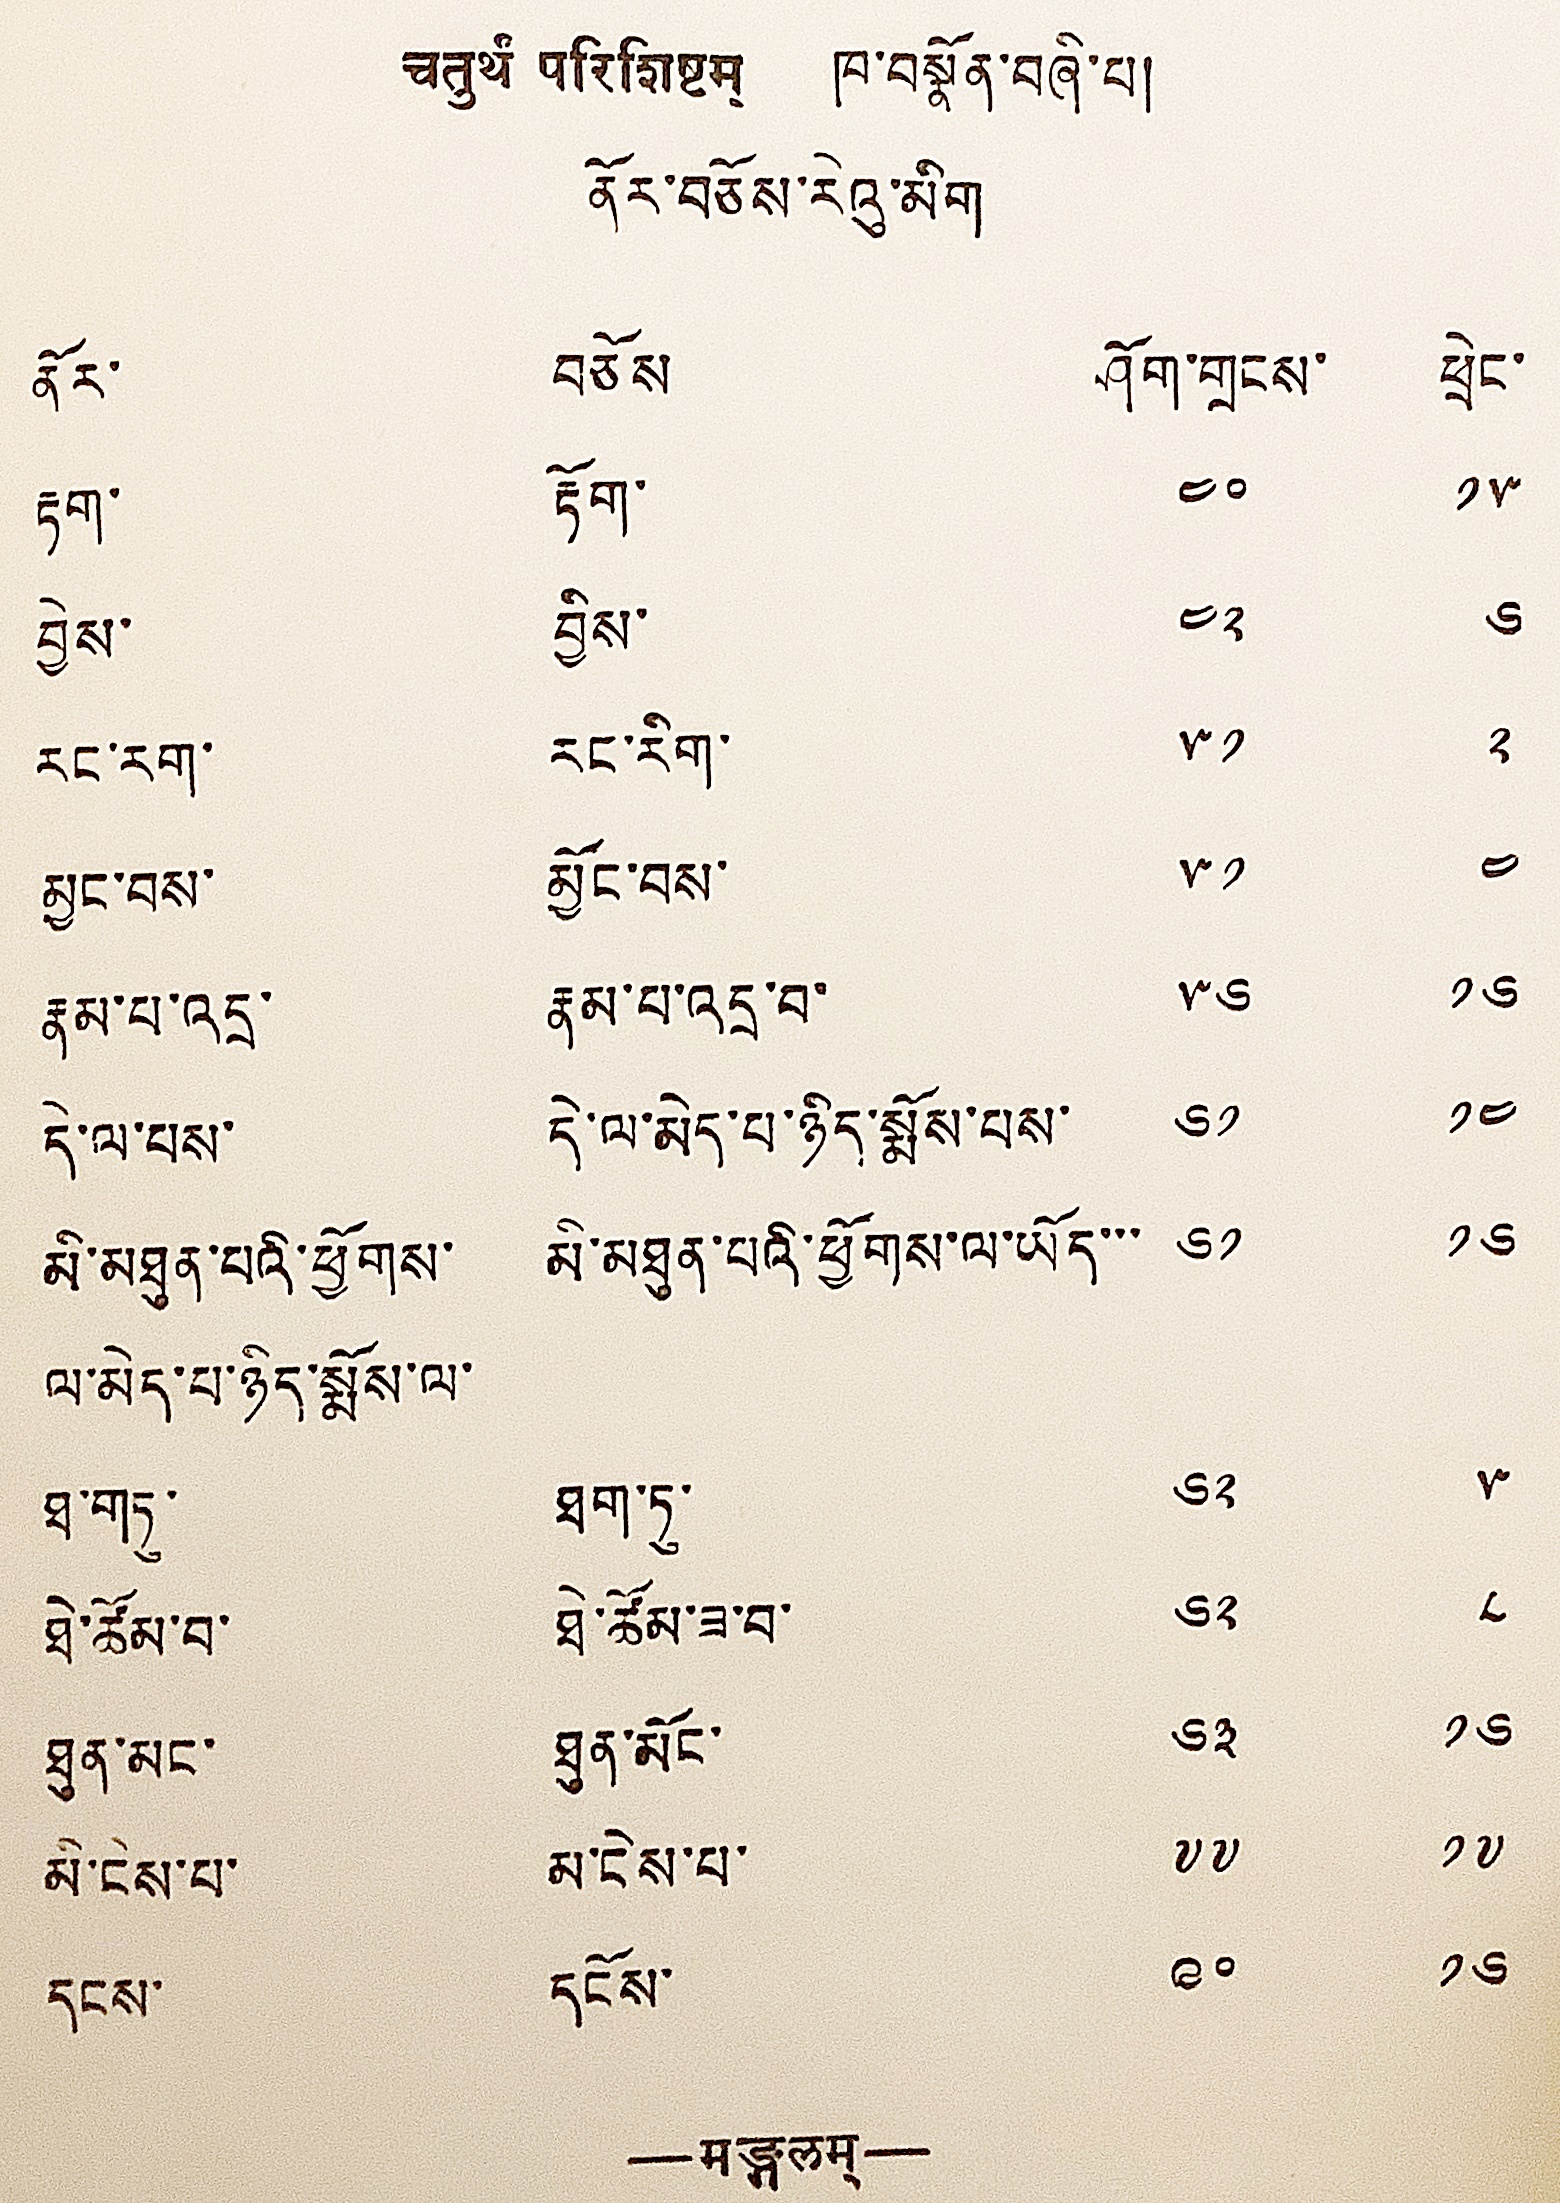 चतुर्थं परिशिष्टम् ཁ་བསྣོན་བཞི་པ།
ནོར་བཅོས་རེའུ་མིག
ནོར་ བཅོས ཤོག་གྲངས་ ཕྲེང་
རྟག་ རྟོག་ ༤༠ ༡༥
བྱེས་ བྱིས་ ༤༢ ༦
རང་རག་ རང་རིག་ ༥༡ ༢
མྱང་བས་ མྱོང་བས་ ༥༡ ༤
རྣམ་པ་འདྲ་ རྣམ་པ་འདྲ་བ་ ༥༦ ༡༦
དེ་ལ་པས་ དེ་ལ་མེད་པ་ཉིད་སྨོས་པས་ ༦༡ ༡༤
མི་མཐུན་པའི་ཕྱོགས་ མི་མཐུན་པའི་ཕྱོགས་ལ་ཡོད་་་ ༦༡ ༡༦
ལ་མེད་པ་ཉིད་སྨོས་ལ་
ཐ་གདུ་ ཐག་ཏུ་ ༦༢ ༥
ཐེ་ཚོམ་བ་ ཐེ་ཚོམ་ཟ་བ་ ༦༢ ༨
ཐུན་མང་ ཐུན་མོང་ ༦༣ ༡༦
མི་ངེས་པ་ མ་ངེས་པ་ ༧༧ ༡༧
དངས་ དངོས་ ༩༠ ༡༦
—मङ्गलम्—